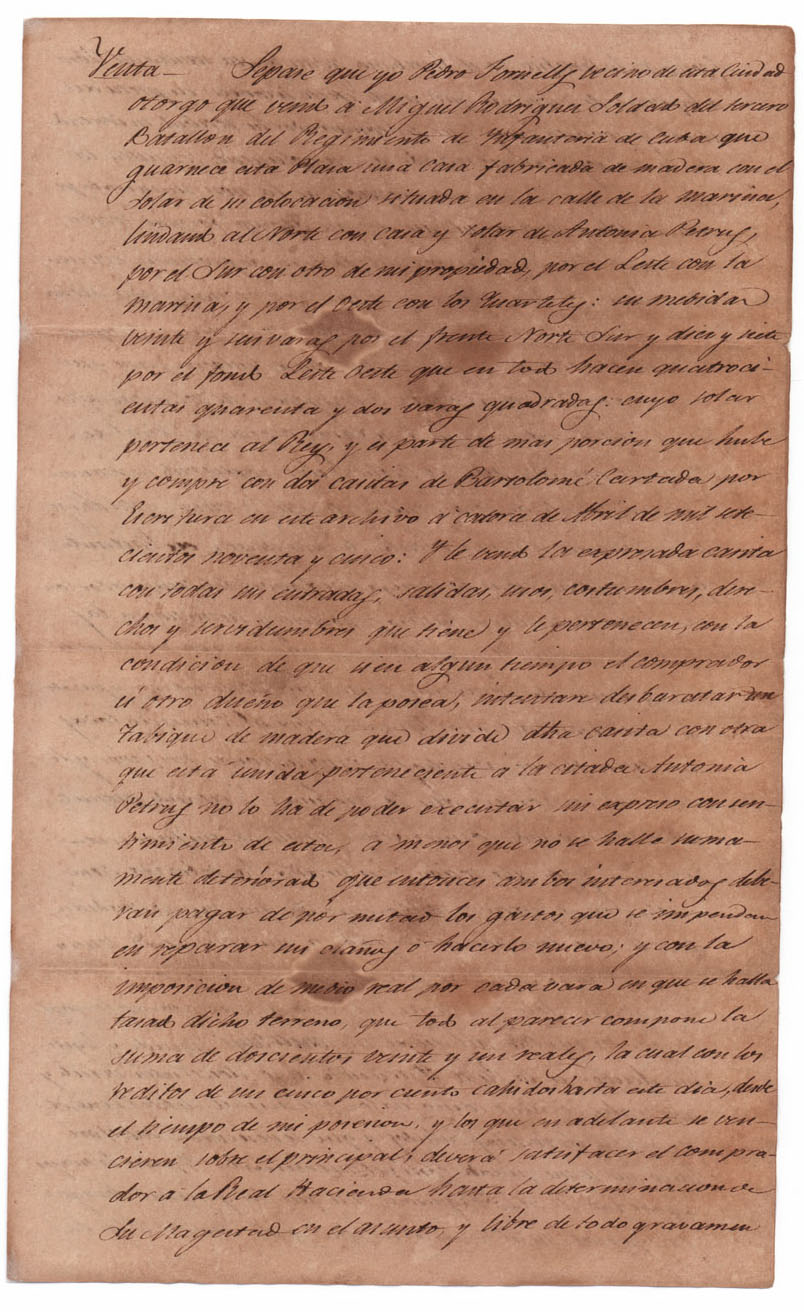 Venta — Sepase que yo Pedro Fornells vecino de esta Ciudad
otorgo que vendo á Miguel Rodriguez Soldado del tercero
Batallon del Regimiento de Infanteria de Cuba que
guarnece esta Plaza una casa fabricada de madera con el
solar de su colocacion situada en la calle de la marina,
lindando al Norte con casa y solar de Antonia Petrus,
por el Sur con otro de mi propiedad, por el Leste con la
marina, y por el Oeste con los Quarteles: su medida
veinte y seis varas por el frente Norte Sur y diez y siete
por el fondo Leste Oeste que en todo hacen quatroci-
entas quarenta y dos varas quadradas: cuyo solar
pertenece al Rey, y es parte de mas porcion que hube
y compré con dos casitas de Bartolomé Castada por
Escritura en este archivo á catorce de Abril de mil sete-
cientos noventa y cinco: Y le vendo la expresada casita
con todas sus entradas, salidas, usos, costumbres, dere-
chos y servidumbres que tiene y le pertenecen, con la
condicion de que si en algun tiempo el comprador
ú otro dueño que la posea, intentare desbaratar un
Tabique de madera que divide dha casita con otra
que está unida perteneciente á la citada Antonia
Petrus no lo há de poder executar sin expreso consen-
timiento de esta, á menos que no se halle suma-
mente deteriorado que entonces ambos interesados debe-
ran pagar de por mitad los gastos que se impendan
en reparar sus daños ó hacerlo nuevo; y con la
imposicion de medio real por cada vara en que se halla
tasado dicho terreno, que todo al parecer compone la
suma de doscientos veinte y un reales, la cual con los
reditos de un cinco por ciento cahidos hasta este dia, desde
el tiempo de mi posesion, y los que en adelante se ven-
cieren sobre el principal, deverá satisfacer el compra-
dor á la Real Hacienda hasta la determinacion de
Su Magestad en el asunto, y libre de todo gravamen